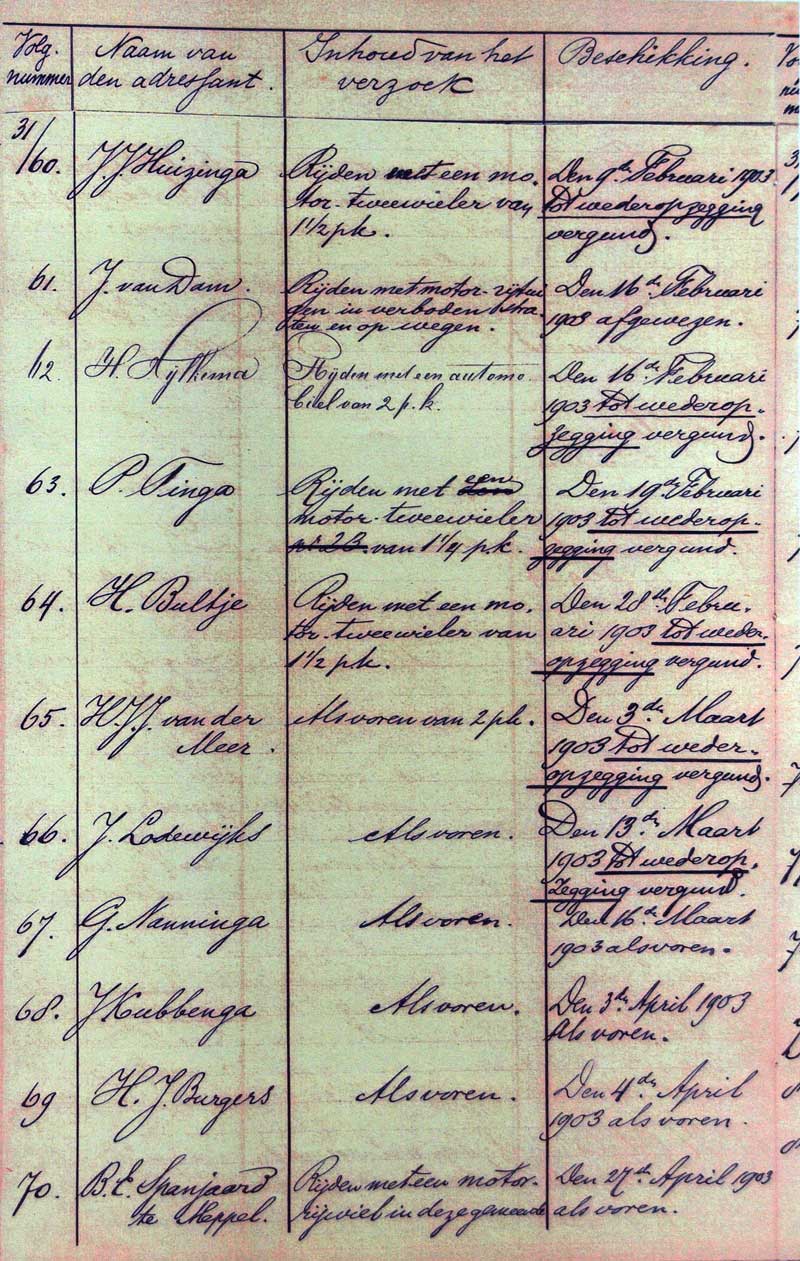 Volg. nummer
Naam van den adressant.
Inhoud van het verzoek
Beschikking.
31/60.
J.J. Huizinga
Rijden met een mo-
tor-tweewieler van
1 1/2 pk.
Den 9de Februari 1903
tot wederopzegging
vergund.
61.
J. van Dam.
Rijden met motor-rijtui
gen in verboden stra
ten en op wegen.
Den 16de Februari
1903 afgewezen.
62.
H.
Rijden met een automo
biel van 2 p.k.
Den 16de Februari
1903 tot wederop-
zegging vergund.
63.
P. Tinga
Rijden met een
motor-tweewieler
van 1 1/4 pk.
Den 19de Februari
1903 tot wederop-
zegging vergund.
64.
H. Bultje
Rijden met een mo-
tor-tweewieler van
1 1/2 pk.
Den 28de Febru-
ari 1903 tot weder-
opzegging vergund.
65.
H.J.J. van der
Meer.
Als voren van 2 pk.
Den 3de Maart
1903 tot weder-
opzegging vergund.
66.
J. Lodewijks
Als voren.
Den 13de Maart
1903 tot wederop-
zegging vergund.
67.
G. Nanninga
Als voren.
Den 16de Maart
1903 als voren.
68.
J Kubbenga
Als voren.
Den 3de April 1903
Als voren.
69
H. J. Burgers
Als voren.
Den 4de April
1903 als voren.
70.
B. E. Spanjaard
te Meppel.
Rijden met een motor-
rijwiel in deze gemeende
Den 27de April 1903
als voren.